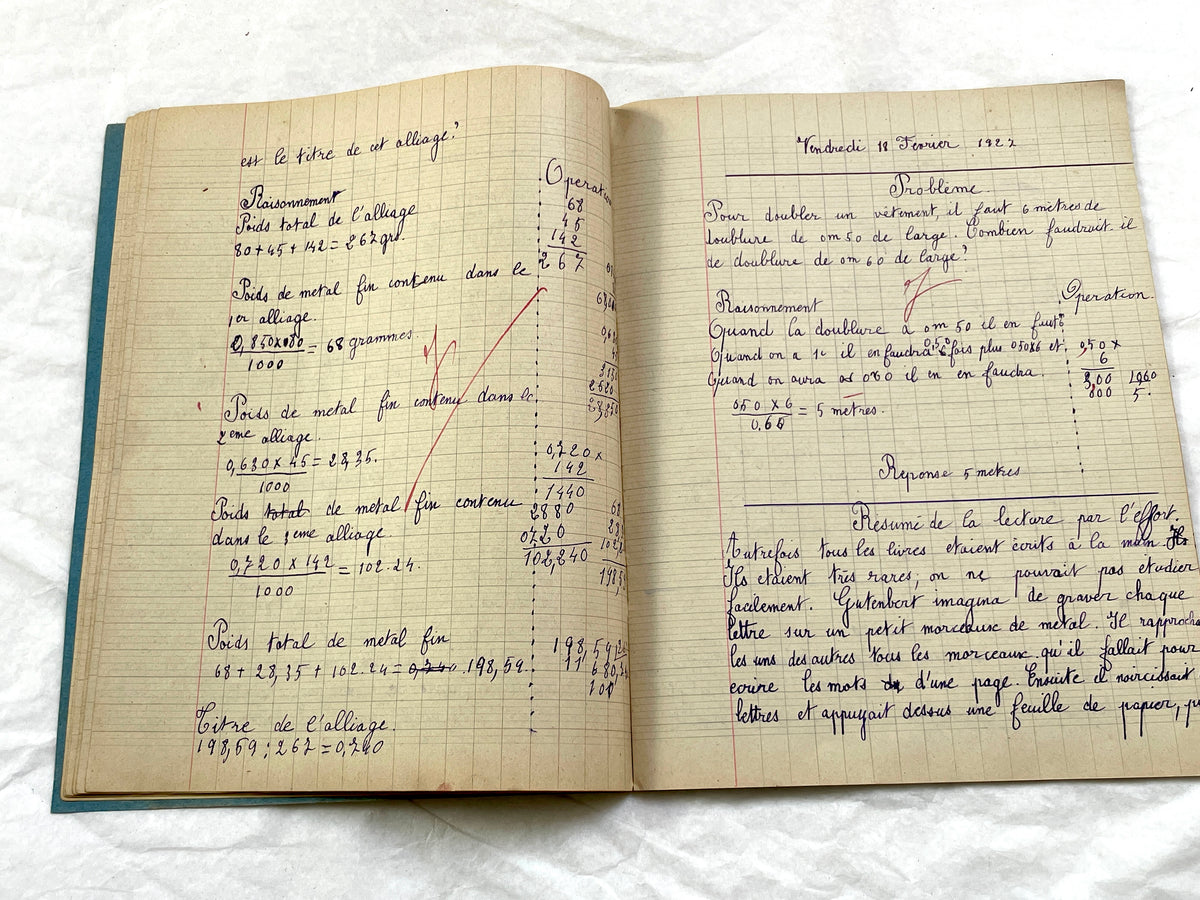 est le titre de cet alliage?
Raisonnement
Operation
Poids total de l'alliage
80 + 45 + 142 = 267 grs.
68
45
142
267
Poids de metal fin contenu dans le
1er alliage.
0,850 x 080 = 68 grammes.
1000
Poids de metal fin contenu dans le
2eme alliage.
0,630 x 45 = 28,35.
1000
Poids total de metal fin contenu
dans le 3eme alliage.
0,720 x 142 = 102.24.
1000
0,720 x
142
1440
2880
0720
102,240
Poids total de metal fin
68 + 28,35 + 102.24 = 0,740 .198,59.
Titre de l'alliage.
198,59 : 267 = 0,740
Vendredi 18 Fevrier 1927
Problème.
Pour doubler un vêtement, il faut 6 metres de
doublure de 0m50 de large. Combien faudrait il
de doublure de 0m60 de large?
Raisonnement
Operation.
Quand la doublure a 0m50 il en faut 6
Quand on a 1c il en faudra 0,50 fois plus 050x6 et
Quand on aura 060 il en en faudra.
050 x 6 = 5 metres.
0,60
0,50 x
6
3,00
000
5.
Reponse 5 metres
Résumé de la lecture par l'effort.
Autrefois tous les livres etaient écrits à la main. Ils
Ils etaient très rares; on ne pouvait pas étudier
facilement. Gutenbert imagina de graver chaque
lettre sur un petit morceaux de metal. Il rapprocha
les uns des autres tous les morceaux qu'il fallait pour
ecrire les mots d'une page. Ensuite il noircissait
lettres et appuyait dessus une feuille de papier,